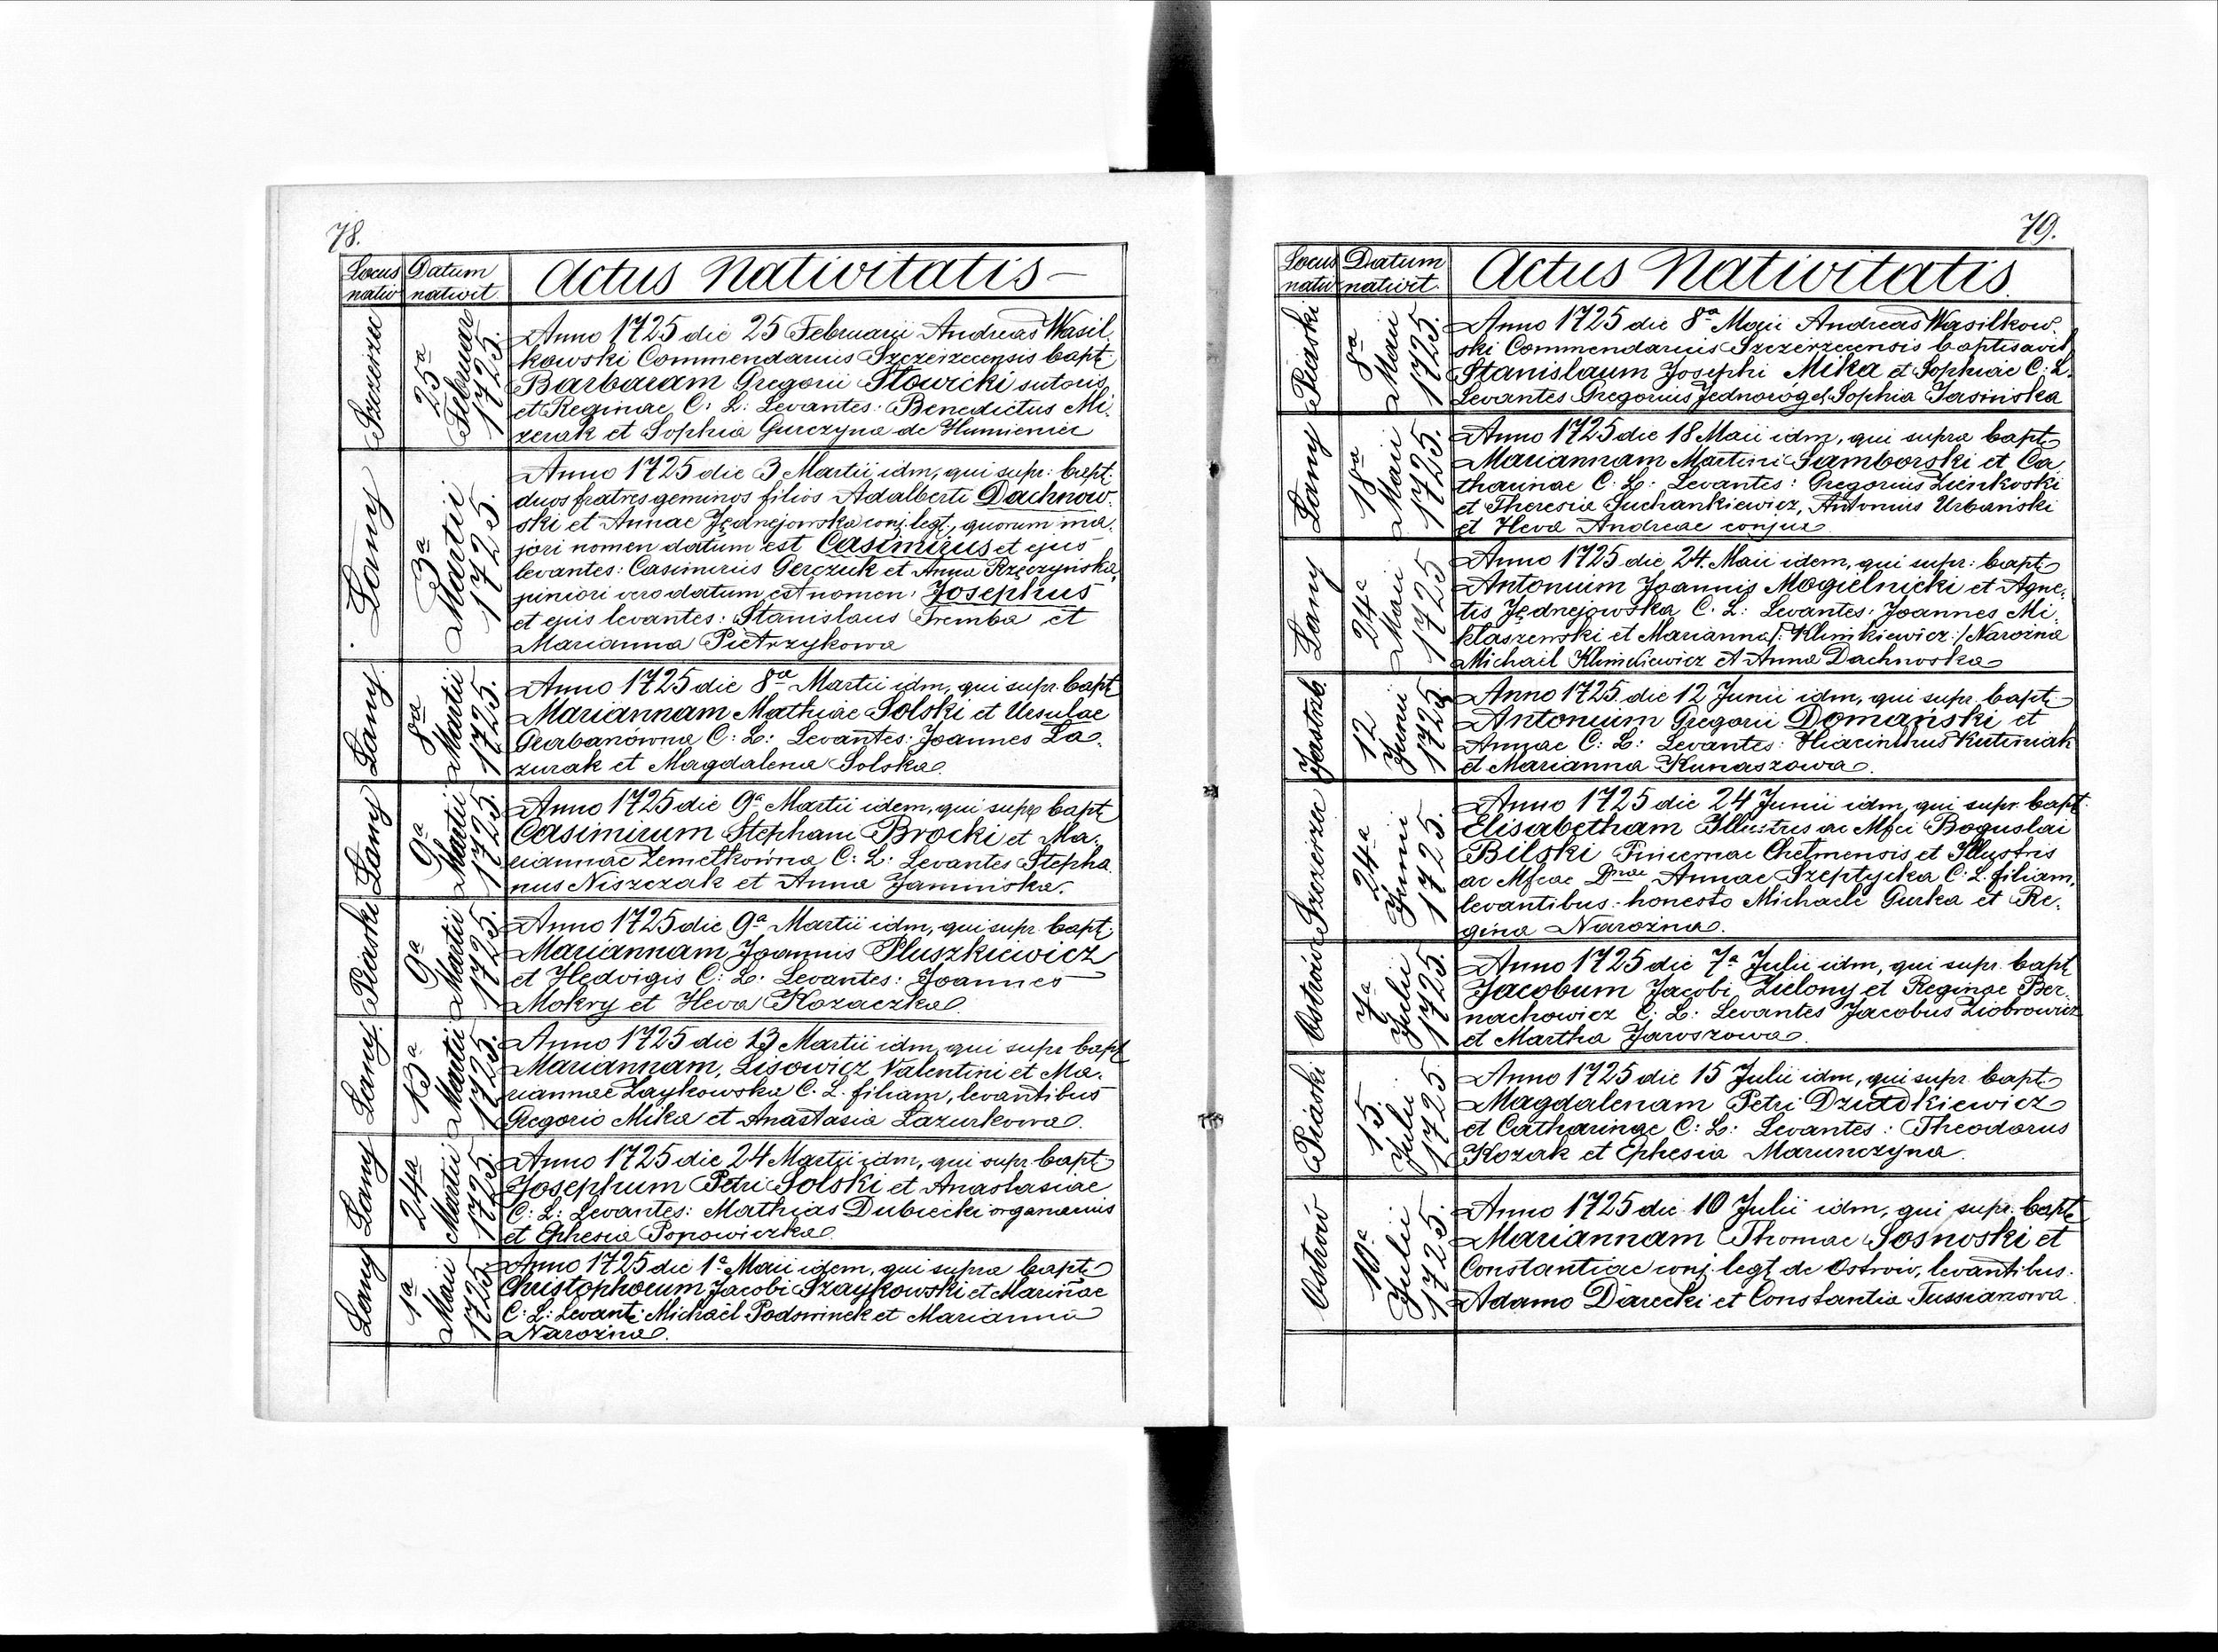 78.
Locus nativ
Datum nativit.
Actus Nativitatis
Szczerzec
25a Februar 1725.
Anno 1725 die 25 Februarii Andreas Wasil
kowski Commendarius Szczerzecensis bapt
Barbaram Gregorii Słowicki sutoris
et Reginae, C: L: Levantes: Benedictus Mi
zerak et Sophia Gurczyna de Humieniec
Łany
3a Martii 1725.
Anno 1725 die 3 Martii idm, qui supr: bapt
duos fratres geminos filios Adalberti Dachnow
ski et Annae Jędrzejowska conj. legt, quorum ma
jori nomen datum est Casimirus et ejus
levantes: Casimirus Gerczuk et Anna Rzęczyńska,
juniori vero datum est nomen Josephus
et ejus levantes: Stanislaus Tremba et
Marianna Pietrzykowa
Łany
8a Martii 1725.
Anno 1725 die 8a Martii idm, qui supr. bapt
Mariannam Mathiae Solski et Ursulae
Gurbanówna C: L: Levantes: Joannes Ła
zurak et Magdalena Solska.
Łany
9a Martii 1725.
Anno 1725 die 9a Martii idem, qui supr bapt
Casimirum Stephani Brocki et Ma
riannae Zemełkówna C: L: Levantes Stepha
nus Niszczak et Anna Jamińska.
Piaski
9a Martii 1725.
Anno 1725 die 9a Martii idm, qui supr. bapt
Mariannam Joannis Pluszkiewicz
et Hedvigis C: L: Levantes: Joannes
Mokry et Heva Kozaczka.
Łany
13a Martii 1725.
Anno 1725 die 13 Martii idm, qui supr bapt
Mariannam, Lisowicz Valentini et Ma
riannae Zaykowska C. L. filiam, levantibus
Gregorio Mika et Anastasia Łazurkowa.
Łany
24a Martii 1725.
Anno 1725 die 24 Martii idm, qui supr. bapt
Josephum Petri Solski et Anastasiae
C: L: Levantes: Mathias Dubiecki organarius
et Ephesia Popowiczka.
Łany
1a Maii 1725.
Anno 1725 die 1a Maii idem, qui supra bapt
Christophorum Jacobi Szaykowski et Marinae
C: L: Levant: Michael Podwinek et Marianna
Narożna.
79.
Locus nativ
Datum nativit.
Actus Nativitatis.
Piaski
8a Maii 1725.
Anno 1725 die 8a Maii Andreas Wasilkow
ski Commendarius Szczerzecensis baptisavit
Stanislaum Josephi Mika et Sophiae C: L.
Levantes Gregorius Jednoróg et Sophia Jasińska
Łany
18a Maii 1725.
Anno 1725 die 18 Maii idm, qui supra bapt
Mariannam Martini Samborski et Ca
tharinae C: L: Levantes: Gregorius Zienkoski
et Theresia Suchankiewicz, Antonius Urbański
et Heva Andreae conjux
Łany
24a Maii 1725
Anno 1725 die 24. Maii idem, qui supr: bapt
Antonium Joannis Mogielnicki et Agne
tis Jędrzejowska C. L: Levantes: Joannes Mi
kłaszewski et Marianna /: Klimkiewicz :/ Narożna
Michail Klimkiewicz et Anna Dachnoska
Jastrzb.
12 Junii 1725
Anno 1725 die 12 Junii idm, qui supr. bapt
Antonium Gregorii Domański et
Annae C: L: Levantes: Hiacinthus Kutiniak
et Marianna Kunaszowa.
Szczerzec
24a Junii 1725.
Anno 1725 die 24 Junii idm, qui supr. bapt
Elisabetham Illustris ac Mfci Boguslai
Bilski Pincernae Chelmensis et Illustris
ac Mfcae Dnae Annae Szeptycka C: L. filiam,
levantibus: honesto Michaele Gurka et Re
gina Narożna.
Ostrów
7a Julii 1725.
Anno 1725 die 7a Julii idm, qui supr. bapt
Jacobum Jacobi Zielony et Reginae Ber
nachowicz C: L: Levantes Jacobus Ziobrowicz
et Martha Jaroszowa.
Piaski
15. Julii 1725
Anno 1725 die 15 Julii idm, qui supr. bapt
Magdalenam Petri Dziadkiewicz
et Catharinae C: L: Levantes: Theodorus
Kozak et Ephesia Marunczyna.
Ostrów
10.a Julii 1725.
Anno 1725 die 10 Julii idm, qui supr. bapt
Mariannam Thomae Sosnoski et
Constantiae conj. legt de Ostrow, levantibus.
Adamo Diarecki et Constantia Tussianowa